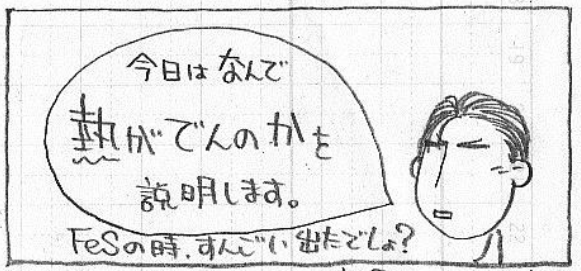 今日はなんで
熱がでんのかを
説明します。
FeSの時、すんごい出たでしょ?